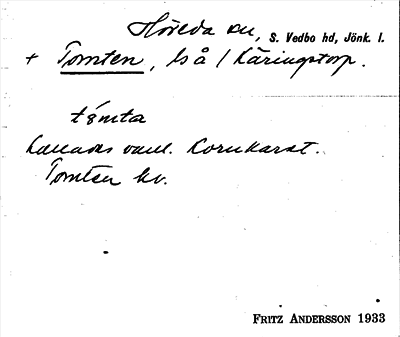 Höreda sn, S. Vedbo hd, Jönk. l.
+ Tomten, ls å / Käringstorp.
tómta
Kallades vanl. Kornkarat.
Tomten kv.
FRITZ ANDERSSON 1933